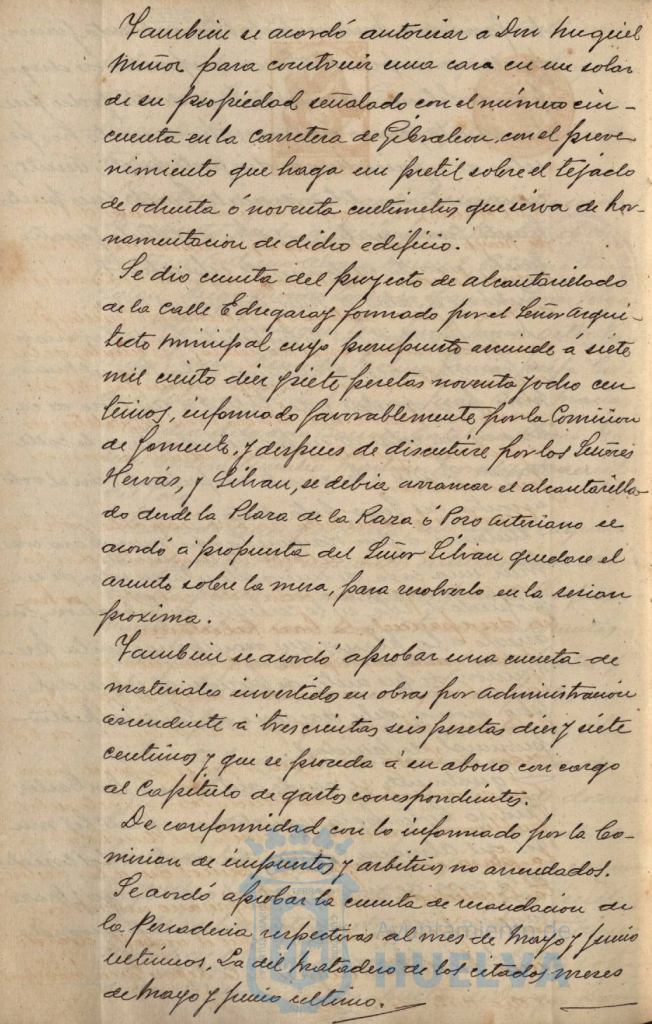 Tambien se acordó autorizar á Don Miguel
Muñoz para construir una casa en un solar
de su propiedad señalado con el número cin-
cuenta en la Carretera de Gibraleon, con el preve-
nimiento que haga un pretil sobre el tejado
de ochenta ó noventa centimetros que sirva de hor-
namentacion de dicho edificio.
Se dio cuenta del proyecto de alcantarillado
de la Calle Echegaray formado por el Señor Arqui-
tecto Minipal cuyo presupuesto asciende á siete
mil ciento diez y siete pesetas noventa y ocho cen
timos, informado favorablemente por la Comision
de Fomento, y despues de discutirse por los Señores
Hervás, y Silvan, se debia arrancar el alcantarilla-
do desde la Plaza de la Raza ó Pozo Artesiano se
acordó á propuesta del Señor Silvan quedase el
asunto sobre la mesa, para resolverlo en la sesion
proxima.
Tambien se acordó aprobar una cuenta de
materiales invertidos en obras por administración
ascendente á trescientas seis pesetas diez y siete
centimos y que se proceda á su abono con cargo
al Capitulo de gastos correspondientes.
De conformidad con lo informado por la Co-
mision de impuestos y arbitrios no arrendados.
Se acordó aprobar la cuenta de recaudacion de
la Pescaderia respectivas al mes de Mayo y Junio
ultimos, La del Matadero de los citados meses
de Mayo y Junio ultimo.
Ayuntamiento de
HUELVA